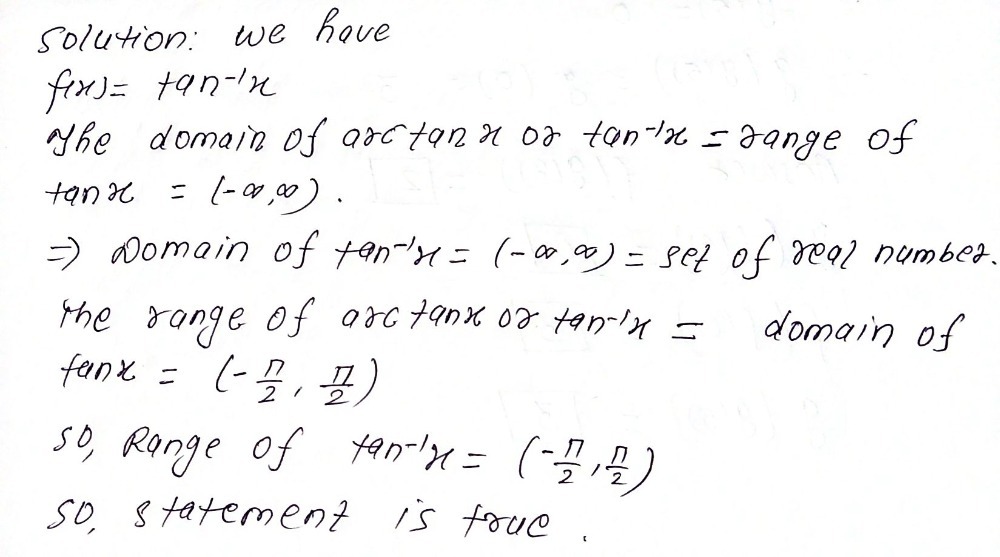 Solution: we have
f(x) = tan⁻¹x
The domain of arctan x or tan⁻¹x = range of
tan x = (-∞,∞).
⇒ Domain of tan⁻¹x = (-∞,∞) = set of real number.
The range of arc tanx or tan⁻¹x = domain of
tanx = (-π/2, π/2)
so, Range of tan⁻¹x = (-π/2, π/2)
so, statement is true.